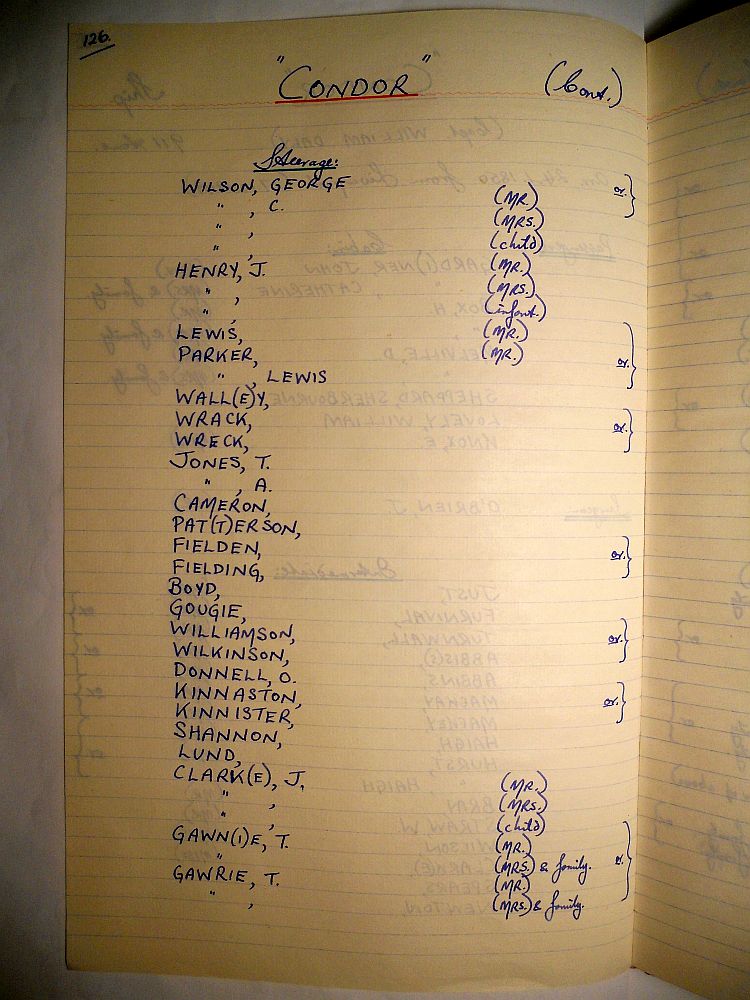 126.
"CONDOR" (Cont.)
Steerage:
WILSON, GEORGE or.}
" , C. (MR.)
" , (MRS.)
" , (child)
HENRY, J. (MR.)
" , (MRS.)
" , (infant.)
LEWIS, (MR.)
PARKER, (MR.) or.}
" , LEWIS
WALL(E)Y,
WRACK, or.}
WRECK,
JONES, T.
" , A.
CAMERON,
PAT(T)ERSON,
FIELDEN, or.}
FIELDING,
BOYD,
GOUGIE,
WILLIAMSON, or.}
WILKINSON,
DONNELL, O.
KINNASTON, or.}
KINNISTER,
SHANNON,
LUND,
CLARK(E), J. (MR.)
" , (MRS.)
" , (child)
GAWN(I)E, T. (MR.)
" , (MRS.) & family. or.}
GAWRIE, T. (MR.)
" , (MRS.) & family.